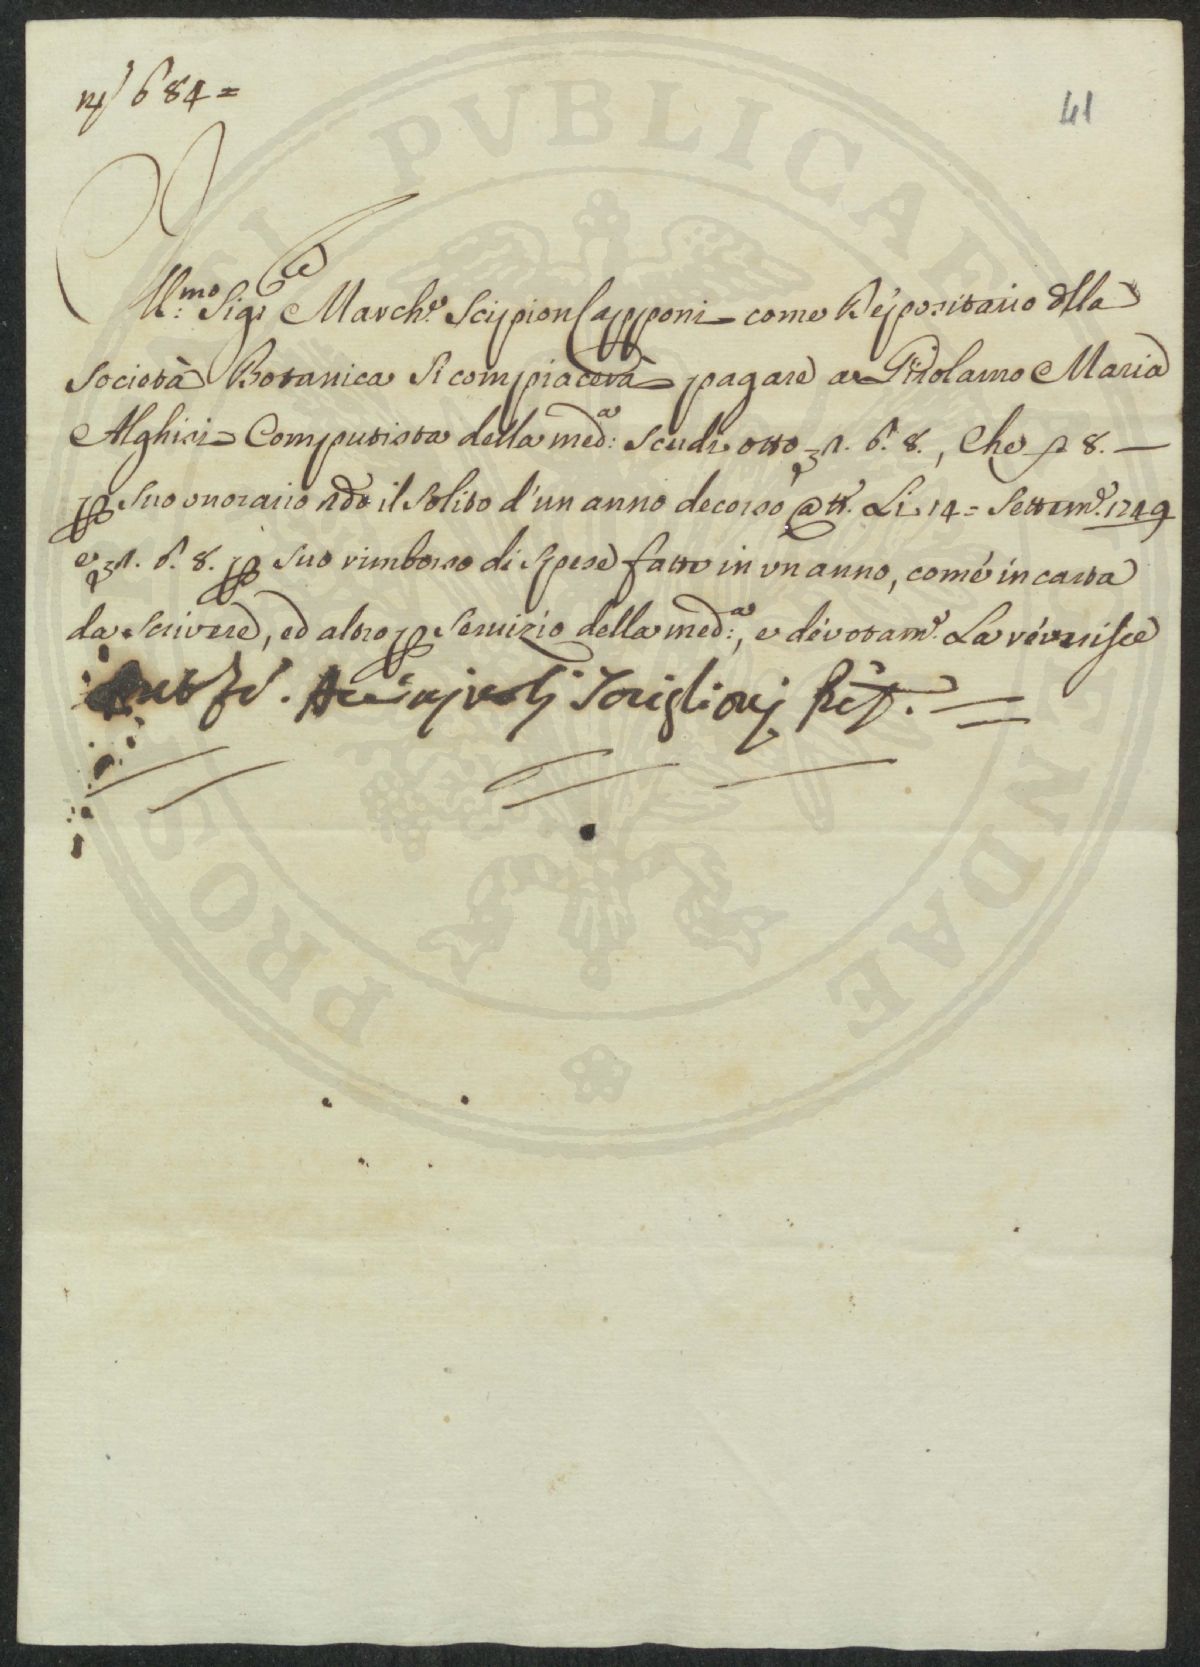 684 =
41
Ill:mo Sig:re March:e Scipion Capponi come Depositario della
Società Botanica Si compiacerà pagare a Girolamo Maria
Alghisi Computista della med:a Scudi otto 1. 6. 8., Che 8. —
suo onorario il Solito d'un anno decorso Li 14 = Settem:e 1749
e 1. 6. 8. suo rimborso di Spese fatte in un anno, come in carta
da Scrivere, ed altro Servizio della med:a, e devotam:e La riverisce